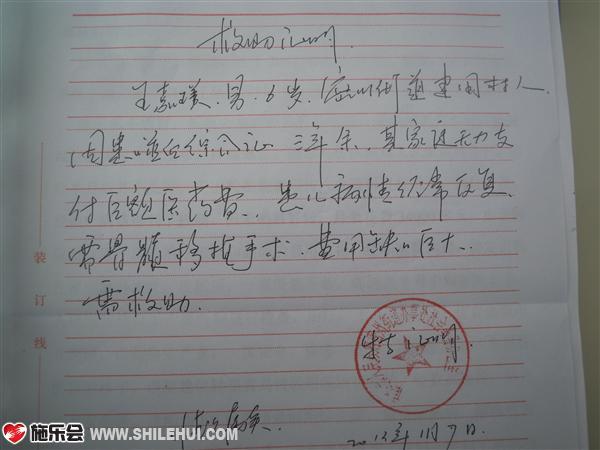 救助证明
王嘉璞、男、6岁、滨州街道建国村人
因患噬血综合证三年余、其家庭无力支
付巨额医药费、患儿病情经常反复、
需骨髓移植手术、费用缺口巨大
需救助.
特此证明.
2012年11月7日.
装
订
线
施乐会 WWW.SHILEHUI.COM